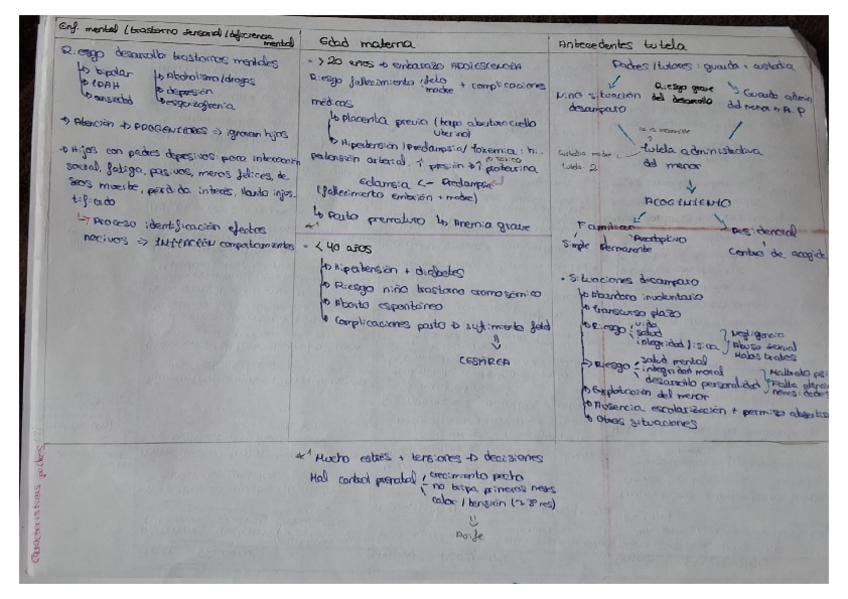 Enf. mental / trastorno sensorial / deficiencia
mental
Riesgo desarrollo trastornos mentales
bipolar
TDAH
ansiedad
Alcoholismo/drogas
depresión
esquizofrenia
→ Atención → PROGENITORES → ignoran hijos
Hijos con padres depresivos: poca interacción
social, fatiga, pasivos, menos felices, de
seos muerte, pérdida interés, llanto injus
tificado
Proceso identificación efectos
nocivos ⇒ IMITACIÓN comportamientos
Edad materna
- > 20 años → embarazo ADOLESCENCIA
Riesgo fallecimiento feto madre + complicaciones
médicas
Placenta previa (tapa abertura cuello
uterino)
Hipertensión / Preclampsia / toxemia: hi..
pertensión arterial. ↑ presión → ↑ proteurina
Eclampsia <- Preclampsia
(fallecimiento embrión + madre)
Parto prematuro Anemia grave
*1
- < 40 años
Hipertensión + diabetes
Riesgo niño trastorno cromosómico
Aborto espontáneo
Complicaciones parto → sufrimiento fetal
CESÁREA
Antecedentes tutela
Padres/tutores: guarda + custodia
Nino situación
desamparo
Riesgo grave
del desarrollo
Guarda admin
del menor A.P
tutela administrativa
del menor
ACOGIMIENTO
Familiar
Simple Permanente
Preadoptivo
Residencial
Centro de acogida
• Situaciones desamparo
Abandono involuntario
Transcurso plazo
Riesgo vida
salud
integridad física
Negligencia
Abuso sexual
Malos tratos
Riesgo salud mental
integridad moral
desarrollo personalidad
Maltrato psi
Falta
necesidades
Explotación del menor
Ausencia escolarización + permiso
Otras situaciones
*1 Mucho estrés + tensiones → decisiones
Mal control prenatal crecimiento pecho
no tripa primeros meses
calor / tensión
Características padres